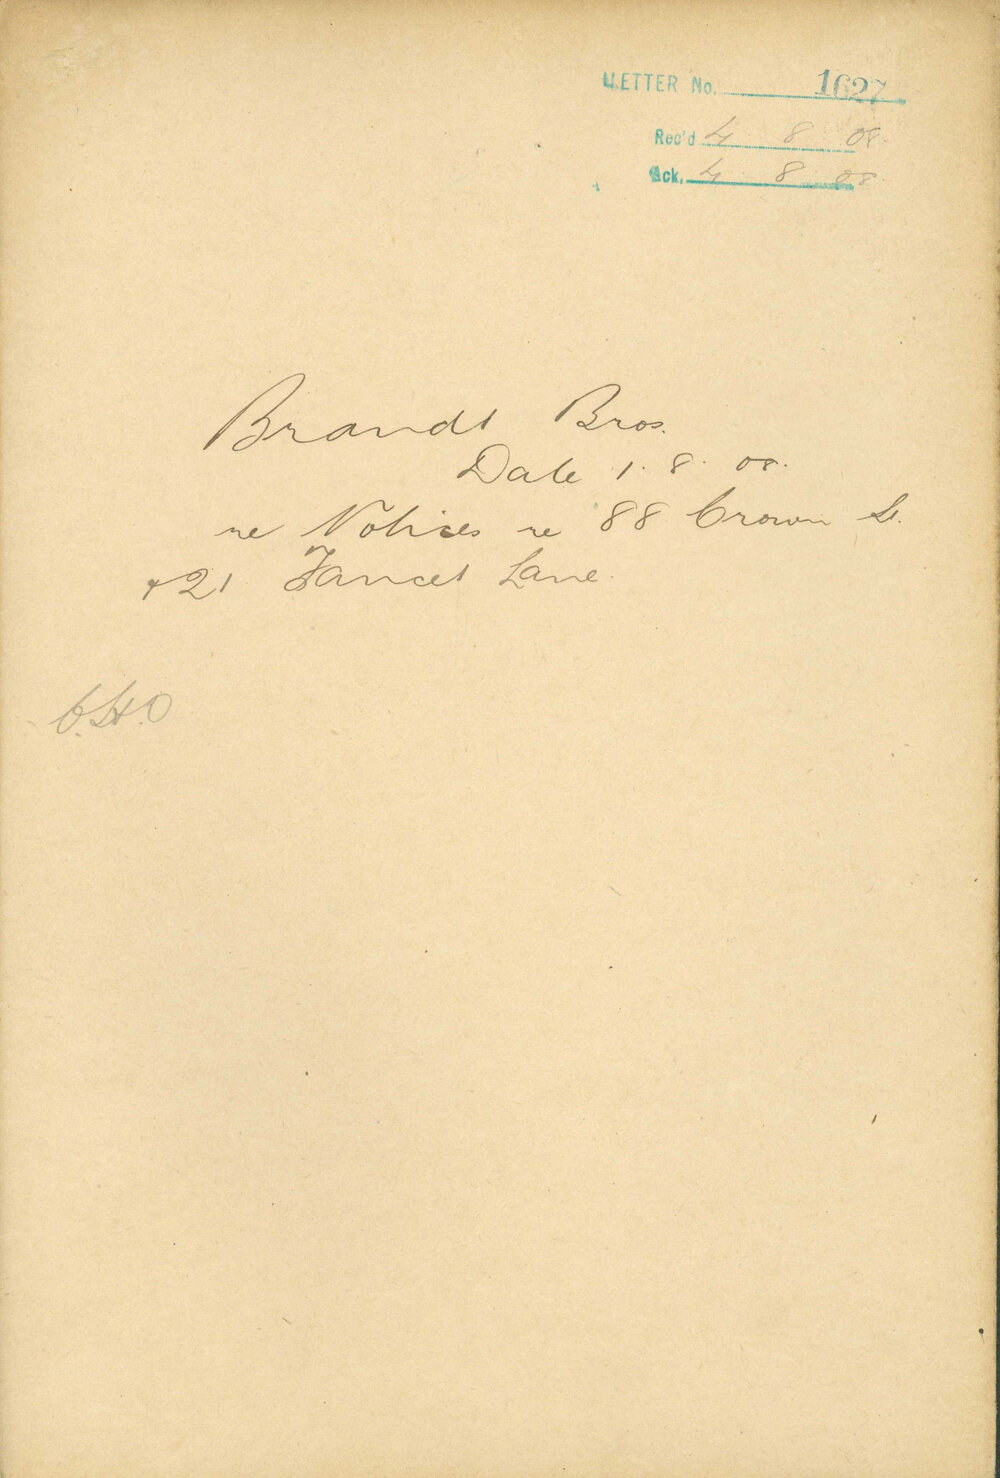 LETTER No. 1627
Rec'd 4 8 08.
Ack. 4 8 08.
Brandt Bros.
Date 1. 8. 08.
re Notices re 88 Crown St.
+ 21 Faucet Lane.
C.H.O